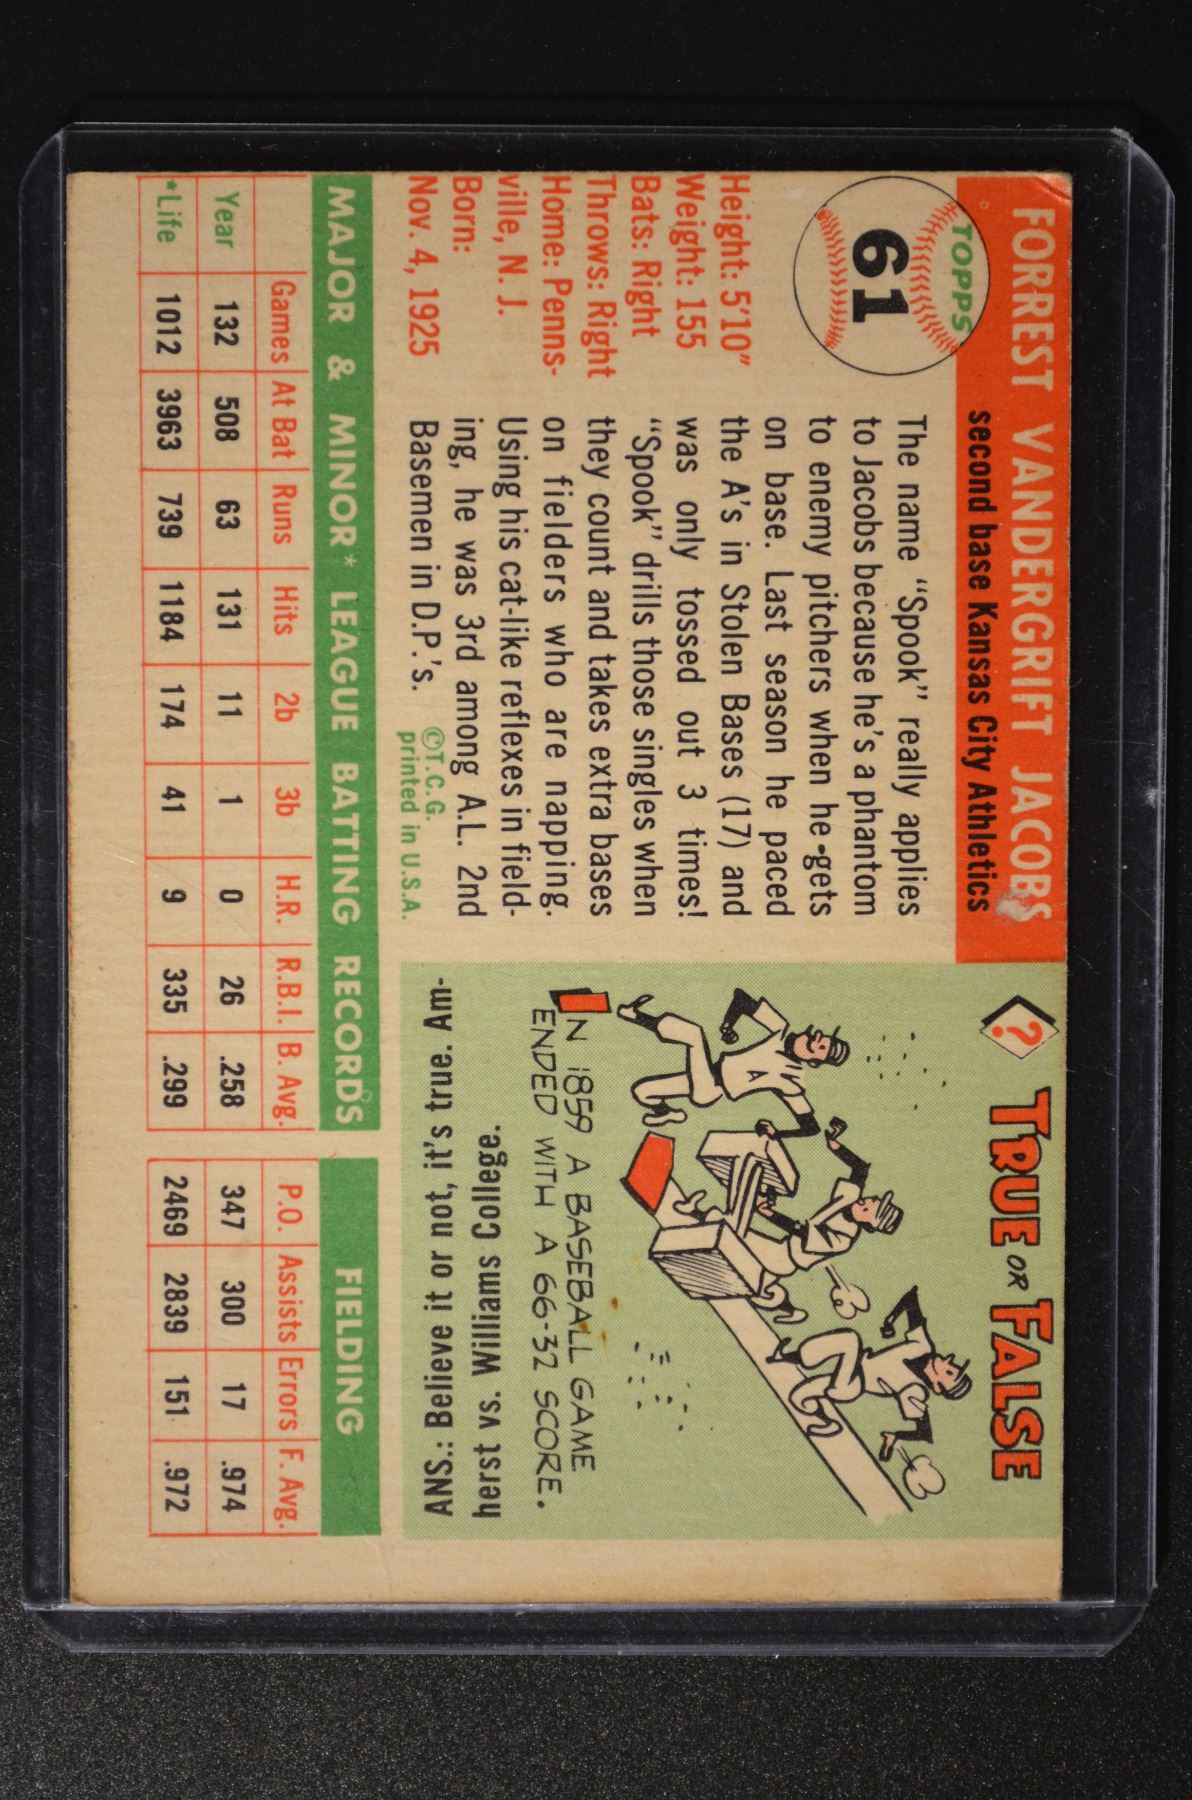 FORREST VANDERGRIFT JACOBS
second base Kansas City Athletics
TOPPS
61
Height: 5'10"
Weight: 155
Bats: Right
Throws: Right
Home: Penns-
ville, N. J.
Born:
Nov. 4, 1925
The name "Spook" really applies
to Jacobs because he's a phantom
to enemy pitchers when he gets
on base. Last season he paced
the A's in Stolen Bases (17) and
was only tossed out 3 times!
"Spook" drills those singles when
they count and takes extra bases
on fielders who are napping.
Using his cat-like reflexes in field-
ing, he was 3rd among A.L. 2nd
Basemen in D.P.'s.
©T.C.G.
printed in U.S.A.
?
TRUE OR FALSE
A
IN 1859 A BASEBALL GAME
ENDED WITH A 66-32 SCORE.
ANS: Believe it or not, it's true. Am-
herst vs. Williams College.
MAJOR & MINOR* LEAGUE BATTING RECORDS FIELDING
Games At Bat Runs Hits 2b 3b H.R. R.B.I. B. Avg. P.O. Assists Errors F. Avg.
Year 132 508 63 131 11 1 0 26 .258 347 300 17 .974
*Life 1012 3963 739 1184 174 41 9 335 .299 2469 2839 151 .972